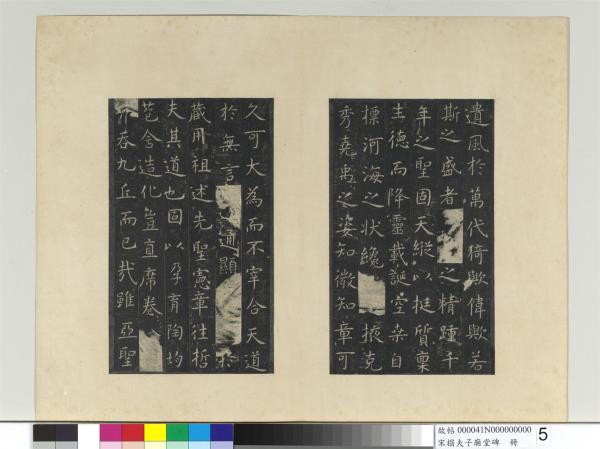 遺風於萬代猗歟偉歟若
斯之盛者之精踵千
年之聖固天縱以挺質稟
生德而降靈載誕空桑自
摽河海之狀纔掖克
秀堯禹之姿知微知章可
久可大為而不宰合天道
於無言通顯於
藏用祖述先聖憲章往哲
夫其道也固以孕育陶均
苞含造化豈直席卷
介吞九丘而已哉雖亞聖
故帖000041N000000000
宋搨夫子廟堂碑 冊
5